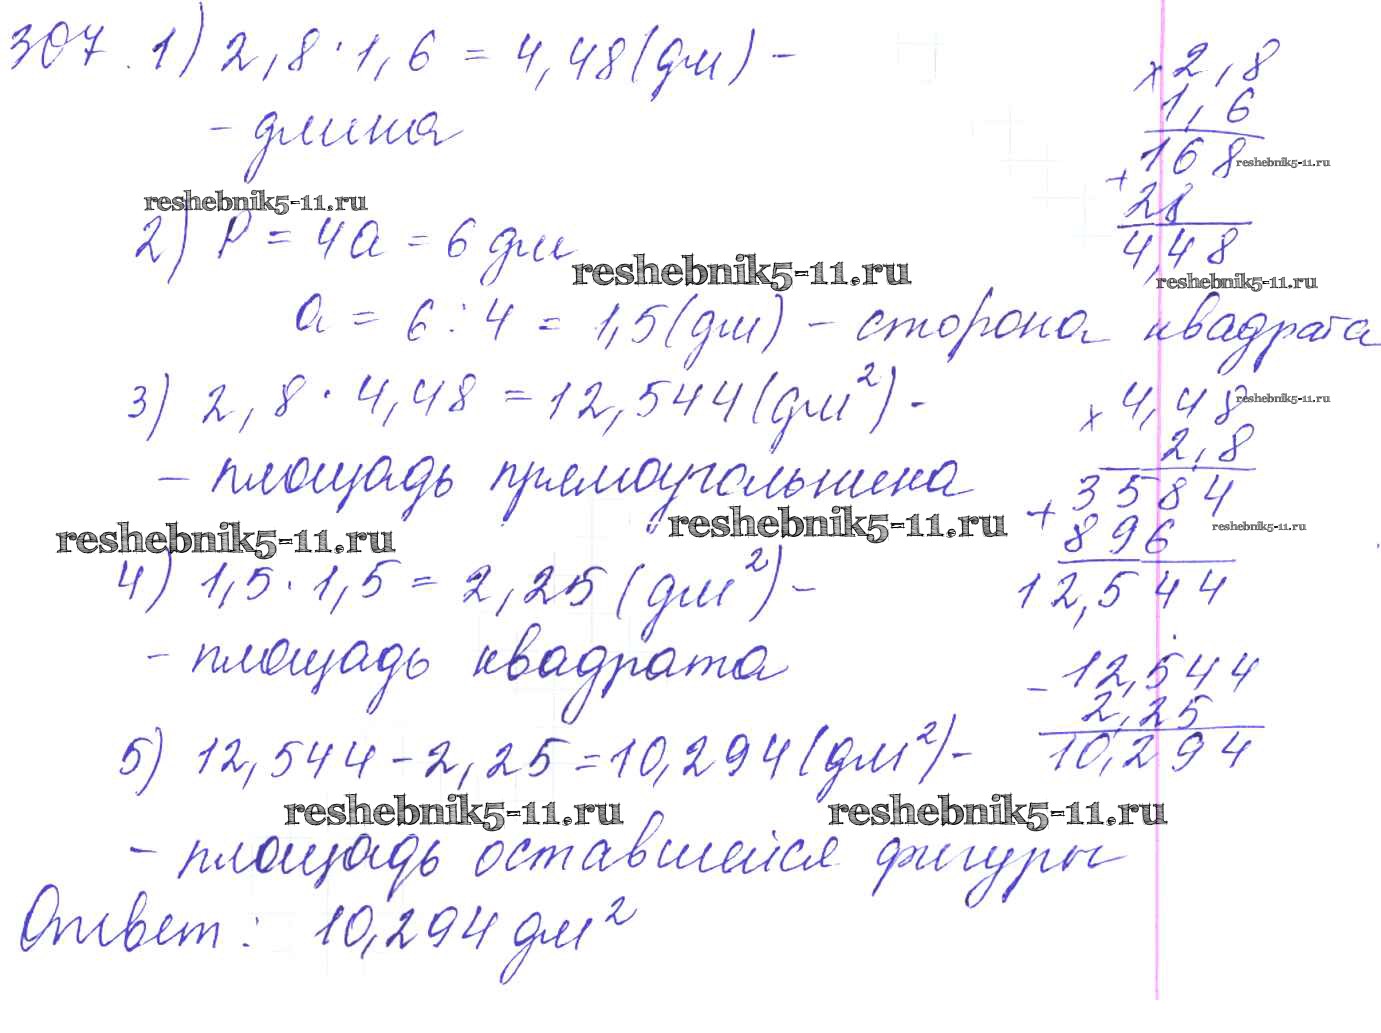 307. 1) 2,8 · 1,6 = 4,48 (дм) -
- длина
× 2,8
1,6
168
+
28
4,48
reshebnik5-11.ru
reshebnik5-11.ru
2) P = 4a = 6 дм
reshebnik5-11.ru
reshebnik5-11.ru
a = 6 : 4 = 1,5 (дм) - сторона квадрата
3) 2,8 · 4,48 = 12,544 (дм²) -
- площадь прямоугольника
× 4,48
reshebnik5-11.ru
2,8
+ 3584
896
reshebnik5-11.ru
12,544
reshebnik5-11.ru
reshebnik5-11.ru
4) 1,5 · 1,5 = 2,25 (дм²) -
- площадь квадрата
- 12,544
2,25
10,294
5) 12,544 - 2,25 = 10,294 (дм²) -
reshebnik5-11.ru
reshebnik5-11.ru
- площадь оставшейся фигуры
Ответ: 10,294 дм²